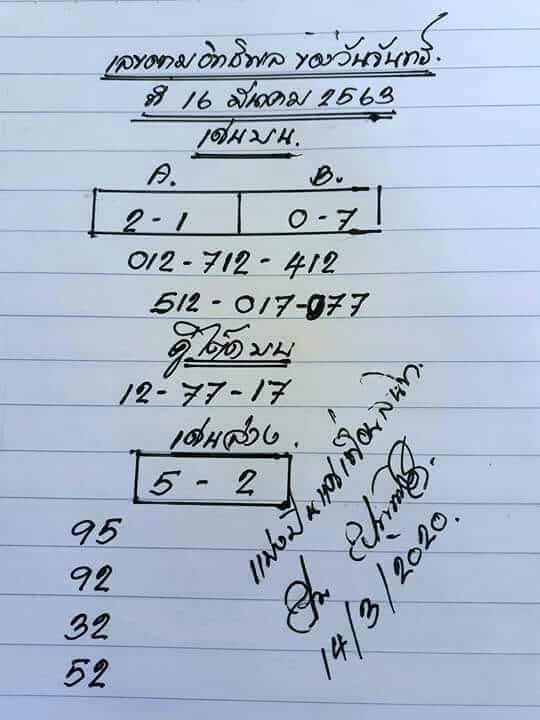 เลขตามอิทธิพล ของวันจันทร์.
ที่ 16 มีนาคม 2563
เด่นบน.
A. B.
2 - 1 0 - 7
012 - 712 - 412
512 - 017 - 077
คู่โต๊ดบน
12 - 77 - 17
เด่นล่าง.
5 - 2
95
92
32
52
แบ่งปัน
14/3/2020.